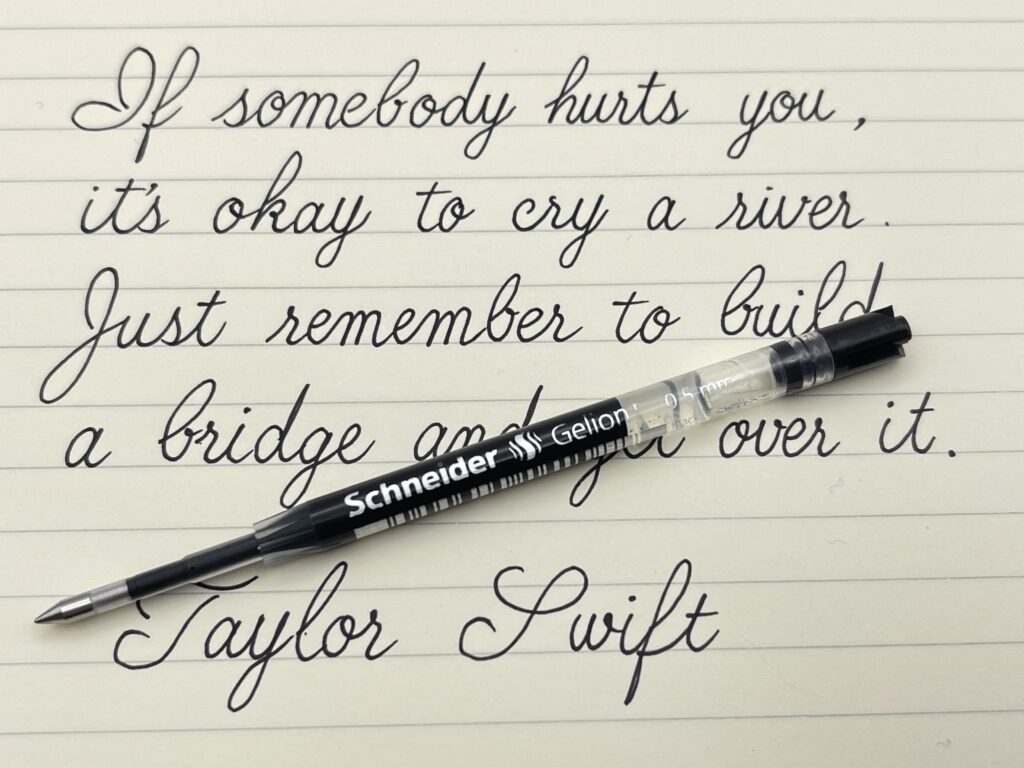 If somebody hurts you,
it's okay to cry a river.
Just remember to build
a bridge and get over it.
Schneider Gelion 0.5 mm
Taylor Swift